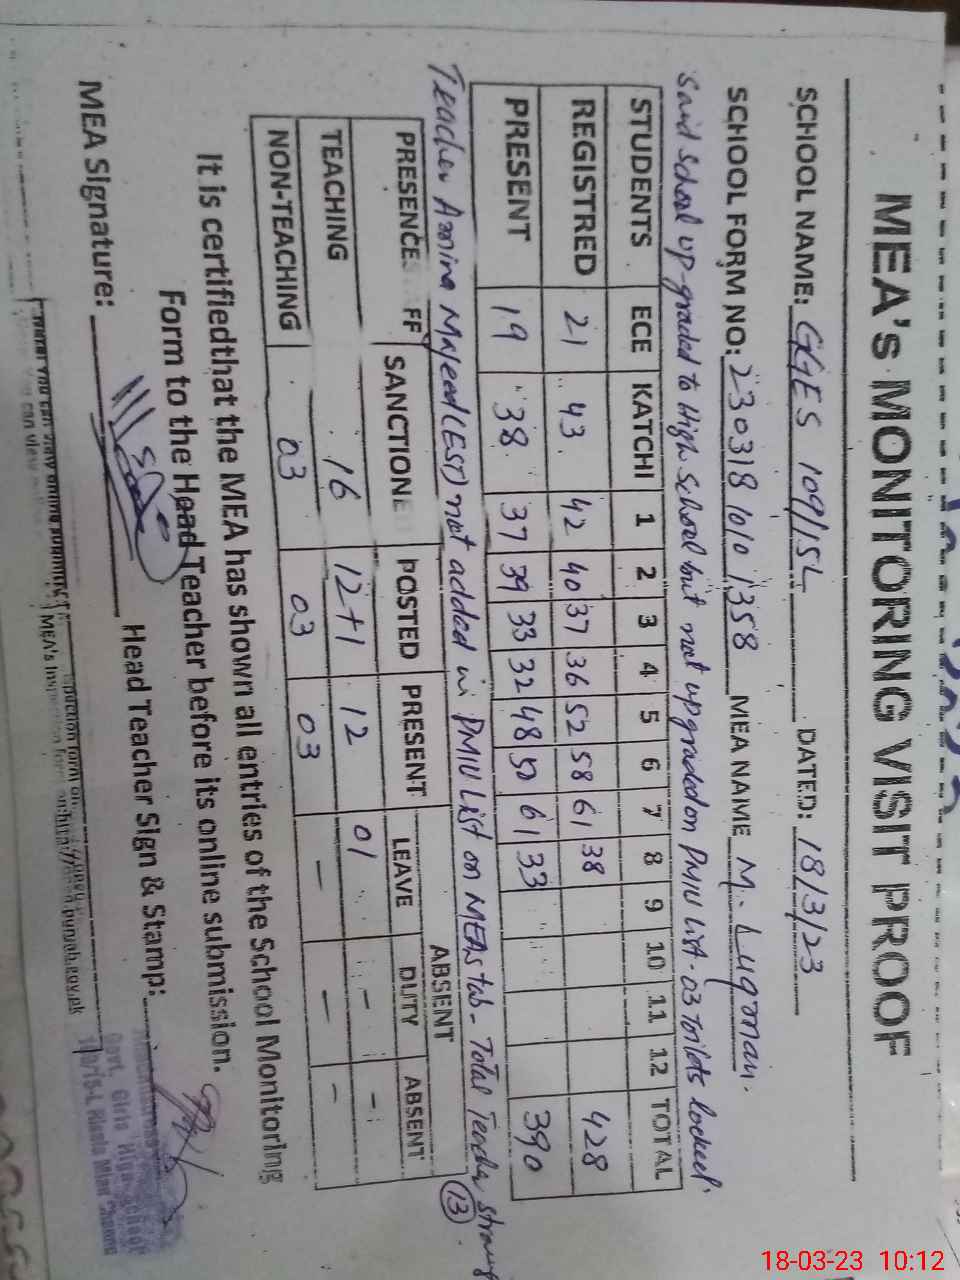 MEA's MONITORING VISIT PROOF
SCHOOL NAME: GGES 109/15L DATED: 18/3/23
SCHOOL FORM NO: 230318 1010 1358 MEA NAME M. Luqman.
said school up-graded to High School but not upgraded on PMIU List. 03 Toilets locked.
STUDENTS ECE KATCHI 1 2 3 4 5 6 7 8 9 10 11 12 TOTAL
REGISTRED 21 43 42 40 37 36 52 58 61 38 428
PRESENT 19 38 37 39 33 32 48 50 61 33 390
Teacher Amina Majeed (EST) not added in PMIU List on MEAs tab - Total Teacher strong
13
PRESENCE FF SANCTIONE POSTED PRESENT ABSENT
LEAVE DUTY ABSENT
TEACHING 16 12+1 12 01 - -
NON-TEACHING 03 03 03 - - -
It is certifiedthat the MEA has shown all entries of the School Monitoring
Form to the Head Teacher before its online submission.
MEA Signature: Head Teacher Sign & Stamp:
Govt. Girls High School
109/15-L Mian Channu
MEA's Inspection form on
18-03-23 10:12